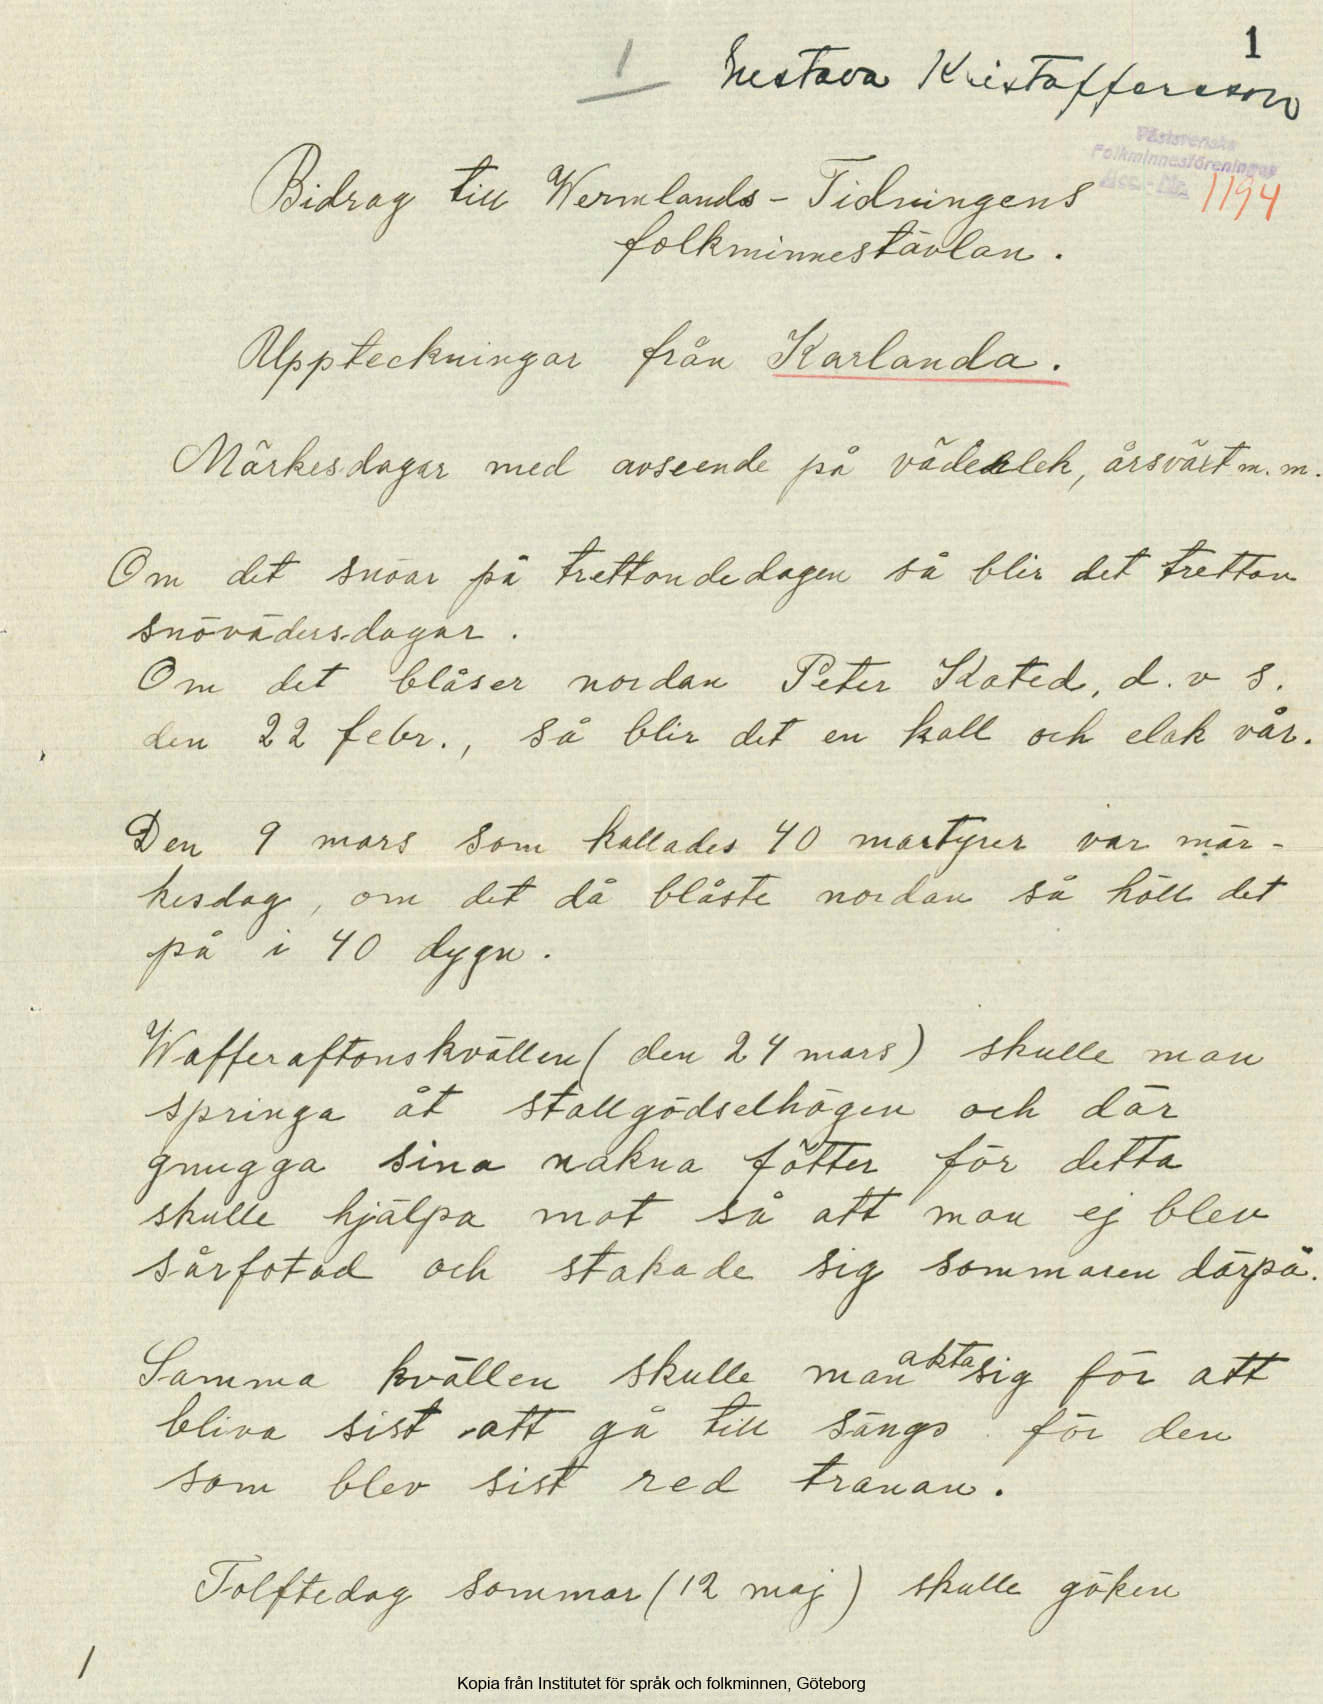 1
1
Gustava Kristoffersson
Västsvenska
Folkminnesföreningen
Acc.-Nr.
1194
Bidrag till Wermlands-Tidningens
folkminnestävlan.
Uppteckningar från Karlanda.
Märkesdagar med avseende på väderlek, årsväxt m.m.
Om det snöar på trettondedagen så blir det tretton
snövädersdagar.
Om det blåser nordan Peter Kated, d.v s.
den 22 febr., så blir det en kall och elak vår.
Den 9 mars som kallades 40 martyrer var mär-
kesdag, om det då blåste nordan så höll det
på i 40 dygn.
Wafferaftonskvällen (den 24 mars) skulle man
springa åt stallgödselhögen och där
gnugga sina nakna fötter för detta
skulle hjälpa mot så att man ej blev
sårfotad och stakade sig sommaren därpå.
Samma kvällen skulle man akta sig för att
bliva sist att gå till sängs för den
som blev sist red tranan.
Tolftedag sommar (12 maj) skulle göken
1
Kopia från Institutet för språk och folkminnen, Göteborg